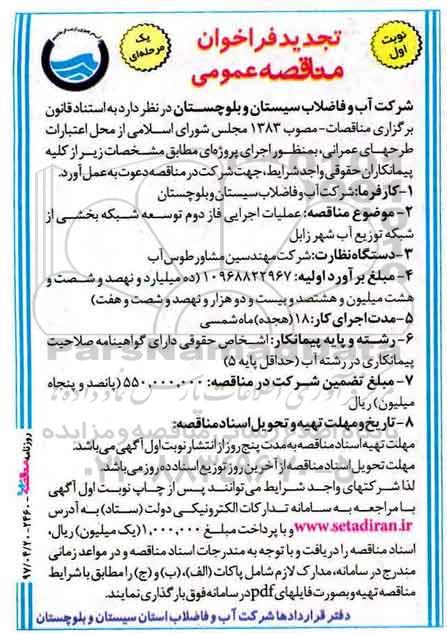 نوبت اول
تجدید فراخوان
مناقصه عمومی
یک مرحله‌ای
شرکت آب و فاضلاب سیستان و بلوچستان در نظر دارد به استناد قانون
برگزاری مناقصات - مصوب ۱۳۸۳ مجلس شورای اسلامی از محل اعتبارات
طرحهای عمرانی، بمنظور اجرای پروژه‌ای مطابق مشخصات زیر از کلیه
پیمانکاران حقوقی واجد شرایط، جهت شرکت در مناقصه دعوت به عمل آورد.
۱- کارفرما: شرکت آب و فاضلاب سیستان و بلوچستان
۲- موضوع مناقصه: عملیات اجرایی فاز دوم توسعه شبکه بخشی از
شبکه توزیع آب شهر زابل
۳- دستگاه نظارت: شرکت مهندسین مشاور طوس آب
۴- مبلغ برآورد اولیه: ۱۰۹۶۸۸۲۲۹۶۷ (ده میلیارد و نهصد و شصت و
هشت میلیون و هشتصد و بیست و دو هزار و نهصد و شصت و هفت)
۵- مدت اجرای کار: ۱۸ (هجده) ماه شمسی
۶- رشته و پایه پیمانکار: اشخاص حقوقی دارای گواهینامه صلاحیت
پیمانکاری در رشته آب (حداقل پایه ۵)
۷- مبلغ تضمین شرکت در مناقصه: ۵۵۰,۰۰۰,۰۰۰ (پانصد و پنجاه
میلیون) ریال
۸- تاریخ و مهلت تهیه و تحویل اسناد مناقصه:
مهلت تهیه اسناد مناقصه به مدت پنج روز از انتشار نوبت اول آگهی می باشد.
مهلت تحویل اسناد مناقصه از آخرین روز توزیع اسناد ده روز می باشد.
لذا شرکتهای واجد شرایط می‌توانند پس از چاپ نوبت اول آگهی
با مراجعه به سامانه تدارکات الکترونیکی دولت (ستاد) به آدرس
www.setadiran.ir و با پرداخت مبلغ ۱,۰۰۰,۰۰۰ (یک میلیون) ریال،
اسناد مناقصه را دریافت و با توجه به مندرجات اسناد مناقصه و در مواعد زمانی
مندرج در سامانه، مدارک لازم شامل پاکات (الف)، (ب) و (ج) را مطابق با شرایط
مناقصه تهیه و بصورت فایلهای pdf در سامانه فوق بارگذاری نمایند.
دفتر قراردادها شرکت آب و فاضلاب استان سیستان و بلوچستان
روزنامه مناقصه مزایده - ۲۴۶۰ - ۹۷/۰۴/۲۰
ParsNamadData